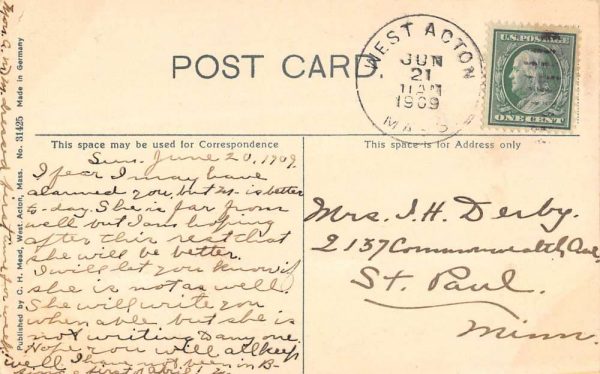 POST CARD.
WEST ACTON
JUN
21
11 AM
1909
MASS.
U.S. POSTAGE
ONE CENT
This space may be used for Correspondence
This space is for Address only
Sun. June 20, 1909.
I fear I may have
alarmed you, but is better
to-day. She is far from
well but I am hoping
after this rest that
she will be better.
I will let you know if
she is not as well.
She will write you
when able but she is
not writing to any one.
Hope you will all keep
well I have not been in B-
since first
Mrs. J. H. Derby.
2137 Commonwealth Ave,
St. Paul.
Minn.
Published by C. H. Mead, West Acton, Mass. No. 31425 Made in Germany